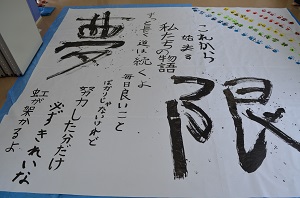 これから
始まる
限
私たちの物語
ずっと長く道は続くよ
夢
毎日良いこと
ばかりじゃないけれど
努力した分だけ
必ずきれいな
虹が架かるよ